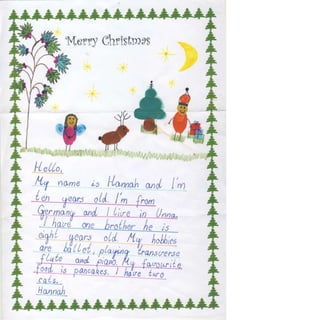 Merry Christmas
Hello,
My name is Hannah and I'm
ten years old. I'm from
Germany and I live in Unna.
I have one brother he is
eight years old. My hobbies
are ballet, playing transverse
flute and piano. My favourite
food is pancakes. I have two
cats.
Hannah